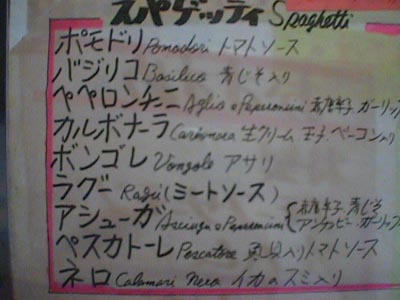 スパゲッティ Spaghetti
ポモドリ Pomodori トマトソース
バジリコ Basilico 青じそ入り
ペペロンチーニ Aglio e Peperoncini 赤唐辛子 ガーリック
カルボナーラ Carbonara 生クリーム 玉子 ベーコン入り
ボンゴレ Vongole アサリ
ラグー Ragú (ミートソース)
アシューガ Acciuga e Peperoncini 赤唐辛子 青じそ
アンチョビー ガーリック
ペスカトーレ Pescatore 魚貝入りトマトソース
ネロ Calamari Nero イカのスミ入り